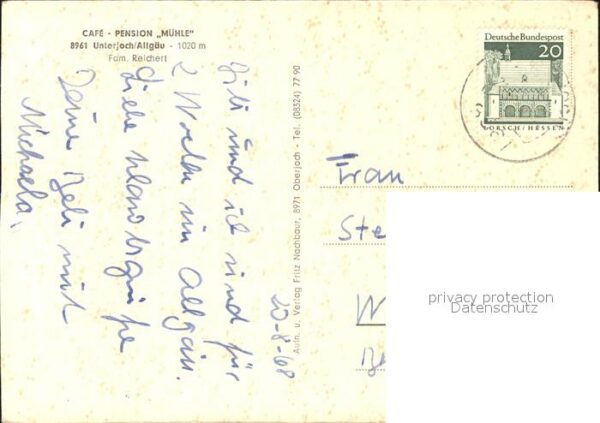 CAFÉ - PENSION „MÜHLE"
8961 Unterjoch/Allgäu - 1020 m
Fam. Reichert
20-8-68
Geli und ich sind für
2 Wochen im Allgäu.
Liebe Urlaubsgrüße
Deine Geli mit
Michaela.
Aufn. u. Verlag Fritz Nachbaur, 8971 Oberjoch - Tel. (08324) 77 90
Deutsche Bundespost
20
LORSCH/HESSEN
Frau
Ste
W
privacy protection
Datenschutz